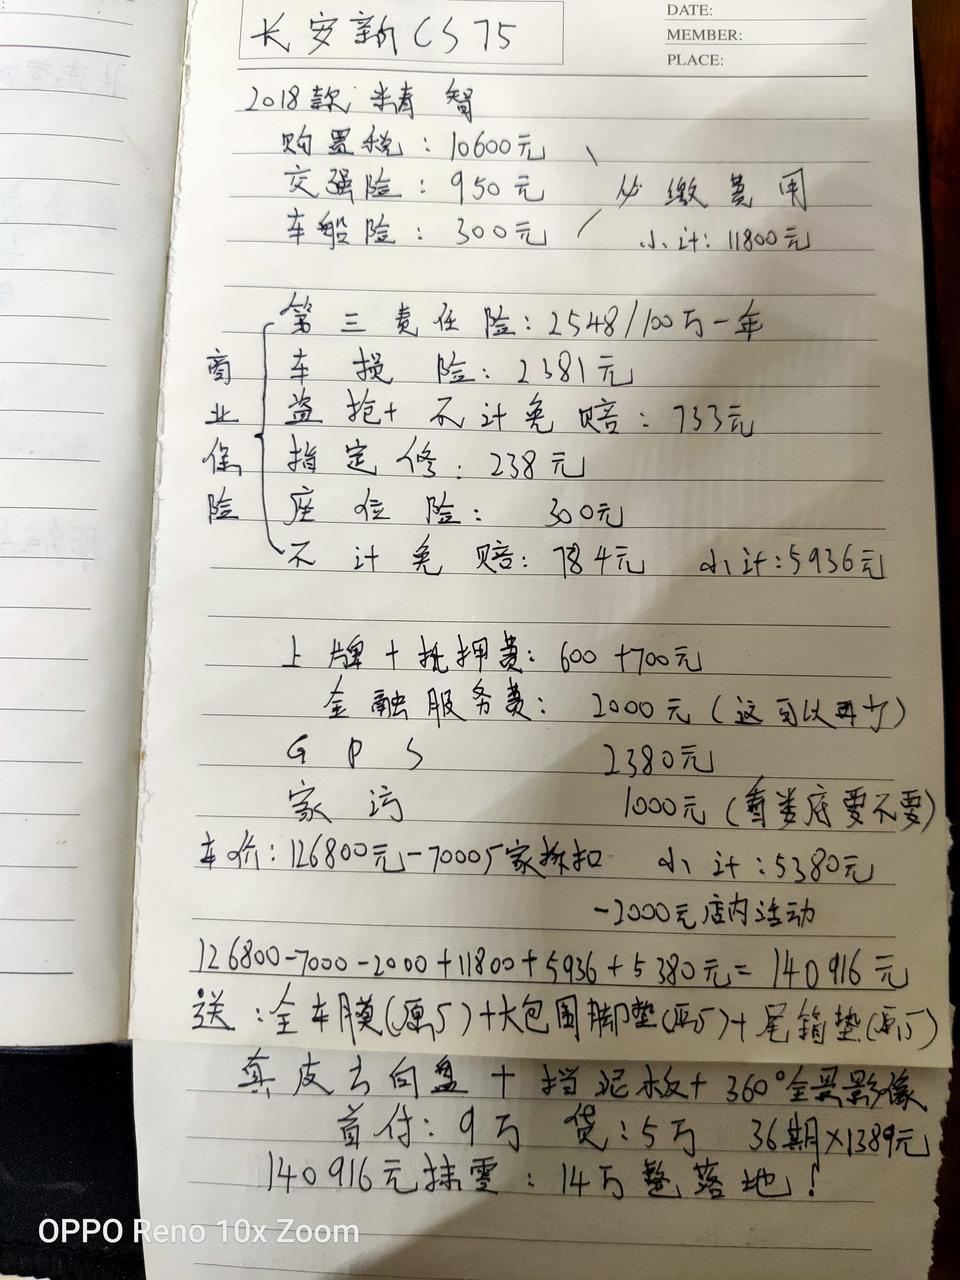 DATE:
MEMBER:
PLACE:
长安新CS75
2018款 精智
购置税：10600元
交强险：950元 必缴费用
车船险：300元 小计：11800元
第三责任险：2548/100万一年
车损险：2381元
盗抢+不计免赔：733元
指定修：238元
座位险：300元
不计免赔：784元 小计：5936元
商业保险
上牌+抵押费：600+700元
金融服务费：2000元（这可以再少）
GPS 2380元
家访 1000元（看娄底要不要）
车价：126800元-7000厂家折扣 小计：5380元
-2000元店内活动
126800-7000-2000+11800+5936+5380元=140916元
送：全车膜(原厂)+大包围脚垫(原厂)+尾箱垫(原厂)
真皮方向盘+挡泥板+360°全景影像
首付：9万 贷：5万 36期×1389元
140916元抹零：14万整落地！
OPPO Reno 10x Zoom